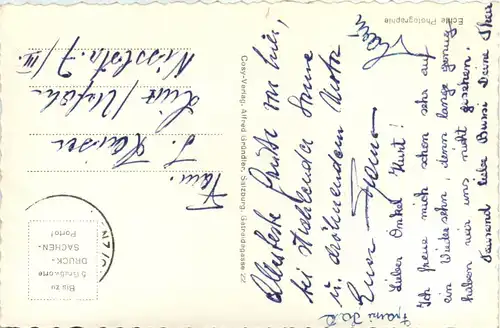 Echte Photographie
Cosy-Verlag, Alfred Gründler, Salzburg, Getreidegasse 22
Bis zu
5 Grußworte
DRUCK-
SACHEN-
Porto!
Fam.
J. Kaiser
Linz / Urfahr
Nissl 7/III.
Allerbeste Grüße von hier,
bei strahlender Sonne
u. dröhnendem
Eure
Lieber Onkel Kurt!
Ich freue mich schon sehr auf
ein Wiedersehn, denn lange genug
haben wir uns nicht gesehen.
Tausend liebe Bussi Deine